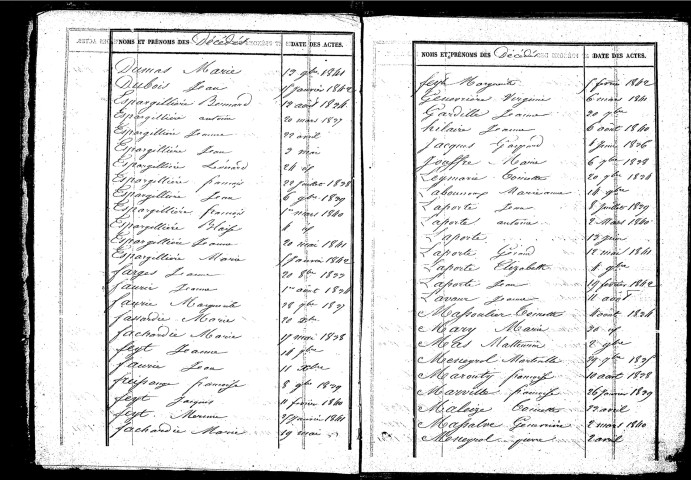 NOMS ET PRÉNOMS DES Décédés DATE DES ACTES.
Dumas Marie 13 9bre 1841
Dubois Jean 5 janvier 1842
Espargilliére Bernard 12 août 1836
Espargilliére antoine 20 mars 1837
Espargilliére Jeanne 22 avril
Espargilliére Jean 2 mai
Espargilliére Léonard 24 id
Espargilliére françois 22 juillet 1838
Espargilliére Jean 6 9bre 1839
Espargilliére françois 1er mars 1840
Espargilliére Blaise 4 id
Espargilliére Jeanne 20 mai 1841
Espargilliére Marie janvier 1842
farges Jeanne 20 8bre 1833
faurie Jeanne 1er août
faurie Marguerite 28 9bre 1837
Marie 20 xbre
fachardie Marie 11 mai 1838
feyt Jeanne 14 9bre
faurie Jean 11 xbre
françoise 8 9bre 1839
feyt Jacques 11 février 1840
feyt janvier 1841
fachardie Marie 19 mai
NOMS ET PRÉNOMS DES Décédés DATE DES ACTES.
feyt Marguerite 5 février 1842
Genevriére Virginie 6 mars 1841
Gardelle Jeanne 20 9bre
hilaire Jeanne 6 août 1840
Jacques Gaspard 4 juin 1836
Jouffre Marie 6 9bre 1838
Leymarie Toinette 20 9bre 1836
Labounoux Marianne 14 9bre
Laporte Jean 8 juillet 1839
Laporte antoine 2 Mars 1840
Laporte 13 juin
Laporte Géraud 12 mai 1841
Laporte Elizabeth 4 9bre
Laporte Jean 19 février 1842
Lavaur Jeanne 11 août
Massalve Toinette 4 août 1836
Mary Marie 20 id
Mas Mathurin 2 9bre
Messeyrol Martiale 29 9bre 1837
Marouty françoise 10 août 1838
Marville françoise 26 janvier 1839
Maleize Toinette 22 avril
Massalve Geneviève 2 mars 1840
Messeyrol pierre 2 avril